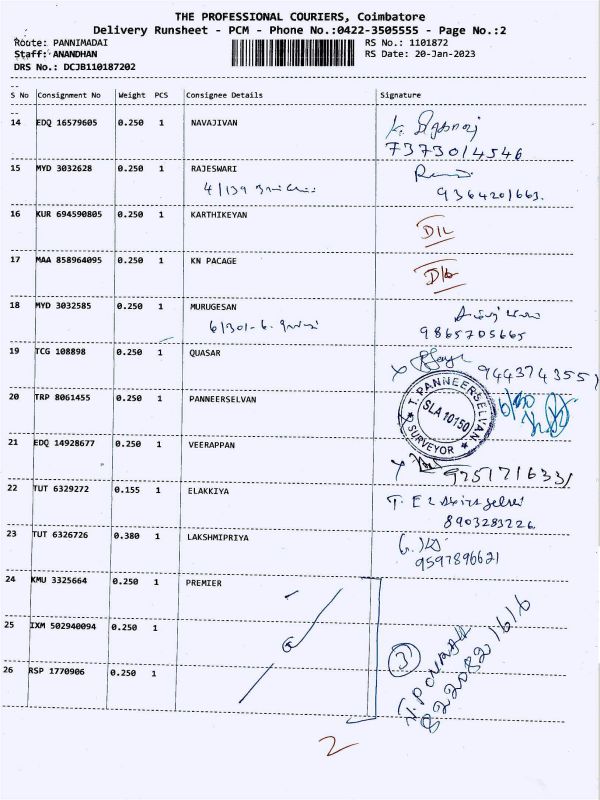 THE PROFESSIONAL COURIERS, Coimbatore
Delivery Runsheet - PCM - Phone No.:0422-3505555 - Page No.:2
Route: PANNIMADAI
RS No.: 1101872
Staff: ANANDHAN
RS Date: 20-Jan-2023
DRS No.: DCJB110187202
S No Consignment No Weight PCS Consignee Details Signature
14 EDQ 16579605 0.250 1 NAVAJIVAN
7373014546
15 MYD 3032628 0.250 1 RAJESWARI
4/139
9364201663.
16 KUR 694590805 0.250 1 KARTHIKEYAN
D/L
17 MAA 858964095 0.250 1 KN PACAGE
18 MYD 3032585 0.250 1 MURUGESAN
6/301-6.
9865705665
19 TCG 108898 0.250 1 QUASAR
9443743551
20 TRP 8061455 0.250 1 PANNEERSELVAN
T. PANNEERSELVAN
SLA 10150
SURVEYOR
21 EDQ 14928677 0.250 1 VEERAPPAN
9751716331
22 TUT 6329272 0.155 1 ELAKKIYA
8903283226
23 TUT 6326726 0.380 1 LAKSHMIPRIYA
9597896621
24 KMU 3325664 0.250 1 PREMIER
25 IXM 502940094 0.250 1
3
8220821616
26 RSP 1770906 0.250 1
2